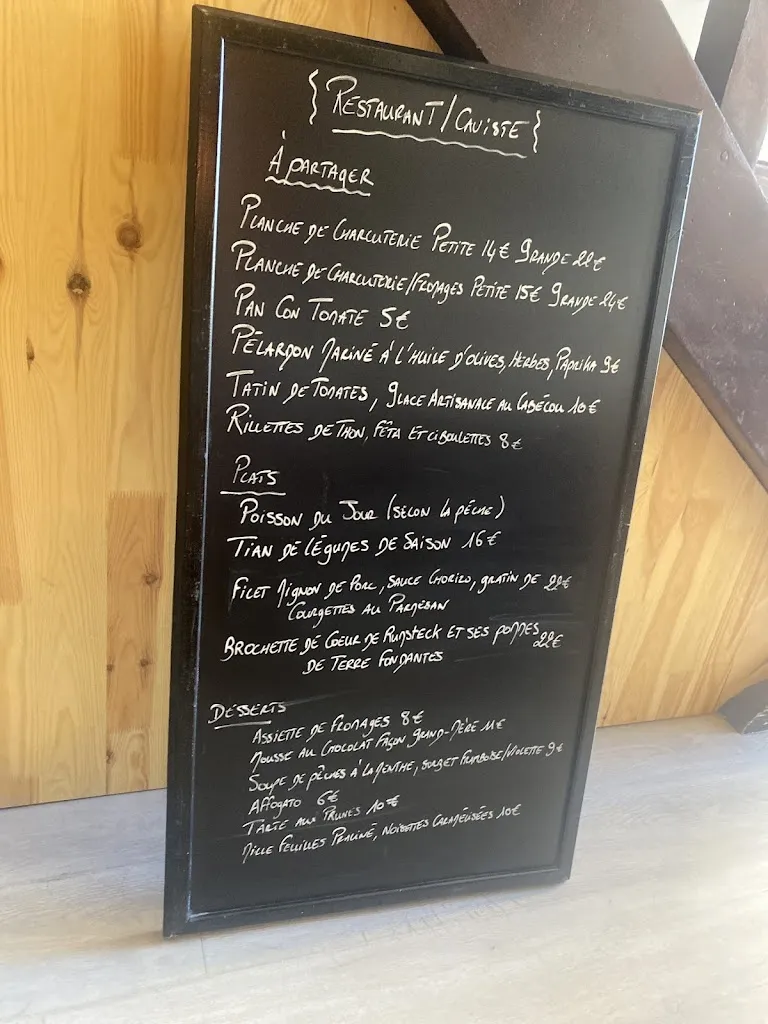 { RESTAURANT/CAVISTE }
À PARTAGER
PLANCHE DE CHARCUTERIE PETITE 14€ GRANDE 22€
PLANCHE DE CHARCUTERIE/FROMAGES PETITE 15€ GRANDE 24€
PAN CON TOMATE 5€
PÉLARDON MARINÉ À L'HUILE D'OLIVES, HERBES, PAPRIKA 9€
TATIN DE TOMATES, GLACE ARTISANALE AU CABÉCOU 10€
RILLETTES DE THON, FÊTA ET CIBOULETTES 8€
PLATS
POISSON DU JOUR (SELON LA PÊCHE)
TIAN DE LÉGUMES DE SAISON 16€
FILET MIGNON DE PORC, SAUCE CHORIZO, GRATIN DE 22€
COURGETTES AU PARMESAN
BROCHETTE DE COEUR DE RUMSTECK ET SES POMMES 22€
DE TERRE FONDANTES
DESSERTS
ASSIETTE DE FROMAGES 8€
MOUSSE AU CHOCOLAT FAÇON GRAND-MÈRE 11€
SOUPE DE PÊCHES À LA MENTHE, SORBET FRAMBOISE/VIOLETTE 9€
AFFOGATO 6€
TARTE AUX PRUNES 10€
MILLE FEUILLES PRALINÉ, NOISETTES CARAMÉLISÉES 10€